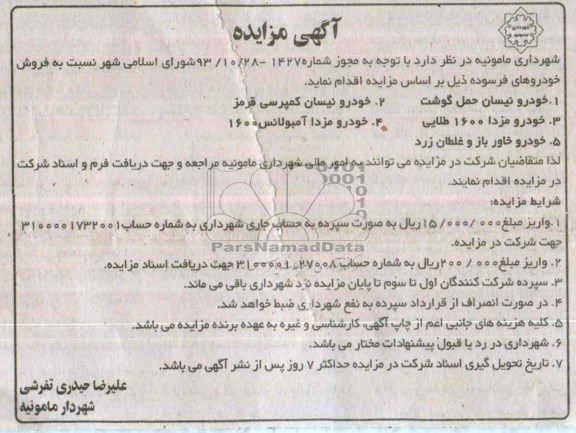 آگهی مزایده
شهرداری مامونیه در نظر دارد با توجه به مجوز شماره۱۴۲۷ -۱۰/۲۸/ ۹۳شورای اسلامی شهر نسبت به فروش
خودروهای فرسوده ذیل بر اساس مزایده اقدام نماید.
۱.خودرو نیسان حمل گوشت ۲. خودرو نیسان کمپرسی قرمز
۳. خودرو مزدا ۱۶۰۰ طلایی ۴. خودرو مزدا آمبولانس۱۶۰۰
۵. خودرو خاور باز و غلطان زرد
لذا متقاضیان شرکت در مزایده می توانند به امور مالی شهرداری مامونیه مراجعه و جهت دریافت فرم و اسناد شرکت
در مزایده اقدام نمایند.
شرایط مزایده:
۱.واریز مبلغ۰۰۰/ ۰۰۰/ ۱۵ریال به صورت سپرده به حساب جاری شهرداری به شماره حساب۳۱۰۰۰۰۱۷۳۲۰۰۱
جهت شرکت در مزایده.
۲. واریز مبلغ۰۰۰/ ۲۰۰ریال به شماره حساب جهت دریافت اسناد مزایده.
۳. سپرده شرکت کنندگان اول تا سوم تا پایان مزایده نزد شهرداری باقی می ماند.
۴. در صورت انصراف از قرارداد سپرده به نفع شهرداری ضبط خواهد شد.
۵. کلیه هزینه های جانبی اعم از چاپ آگهی، کارشناسی و غیره به عهده برنده مزایده می باشد.
۶. شهرداری در رد یا قبول پیشنهادات مختار می باشد.
۷. تاریخ تحویل گیری اسناد شرکت در مزایده حداکثر ۷ روز پس از نشر آگهی می باشد.
علیرضا حیدری تفرشی
شهردار مامونیه
ParsNamadData